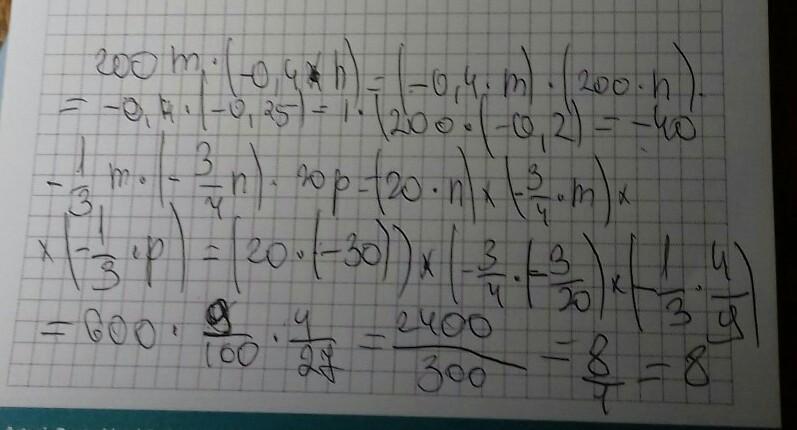 200 m · (-0,4 · n) = (-0,4 · m) · (200 · n).
= -0,4 · (-0,25) = 1 · (200 · (-0,2) = -40
-1/3 m · (-3/4 n) · 20p = (20 · n) × (-3/4 · m) ×
× (-1/3 · p) = (20 · (-30)) × (-3/4 · (-3/20) × (-1/3 · 4/9)
= 600 · 9/100 · 4/27 = 2400/300 = 8/1 = 8